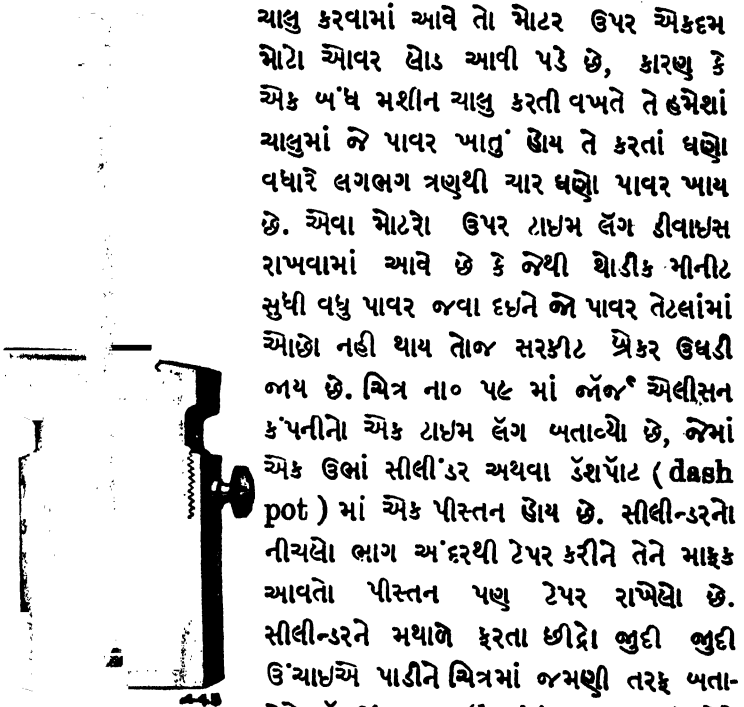 ચાલુ કરવામાં આવે તો મોટર ઉપર એકદમ
મોટો ઓવર લોડ આવી પડે છે, કારણ કે
એક બંધ મશીન ચાલુ કરતી વખતે તે હમેશાં
ચાલુમાં જે પાવર ખાતું હોય તે કરતાં ઘણો
વધારે લગભગ ત્રણથી ચાર ઘણો પાવર ખાય
છે. એવા મોટરો ઉપર ટાઇમ લૅગ ડીવાઇસ
રાખવામાં આવે છે કે જેથી થોડીક મીનીટ
સુધી વધુ પાવર જવા દઇને જો પાવર તેટલાંમાં
ઓછો નહી થાય તોજ સરકીટ બ્રેકર ઉઘડી
જાય છે. ચિત્ર ના૦ ૫૯ માં જ્યૉર્જ એલીસન
કંપનીનો એક ટાઇમ લૅગ બતાવ્યો છે, જેમાં
એક ઉભાં સીલીંડર અથવા ડૅશપૉટ (dash
pot) માં એક પીસ્તન હોય છે. સીલીન્ડરનો
નીચલો ભાગ અંદરથી ટેપર કરીને તેને માફક
આવતો પીસ્તન પણ ટેપર રાખેલો છે.
સીલીન્ડરને મથાળે ફરતા છીદ્રો જુદી જુદી
ઉંચાઇએ પાડીને ચિત્રમાં જમણી તરફ બતા-